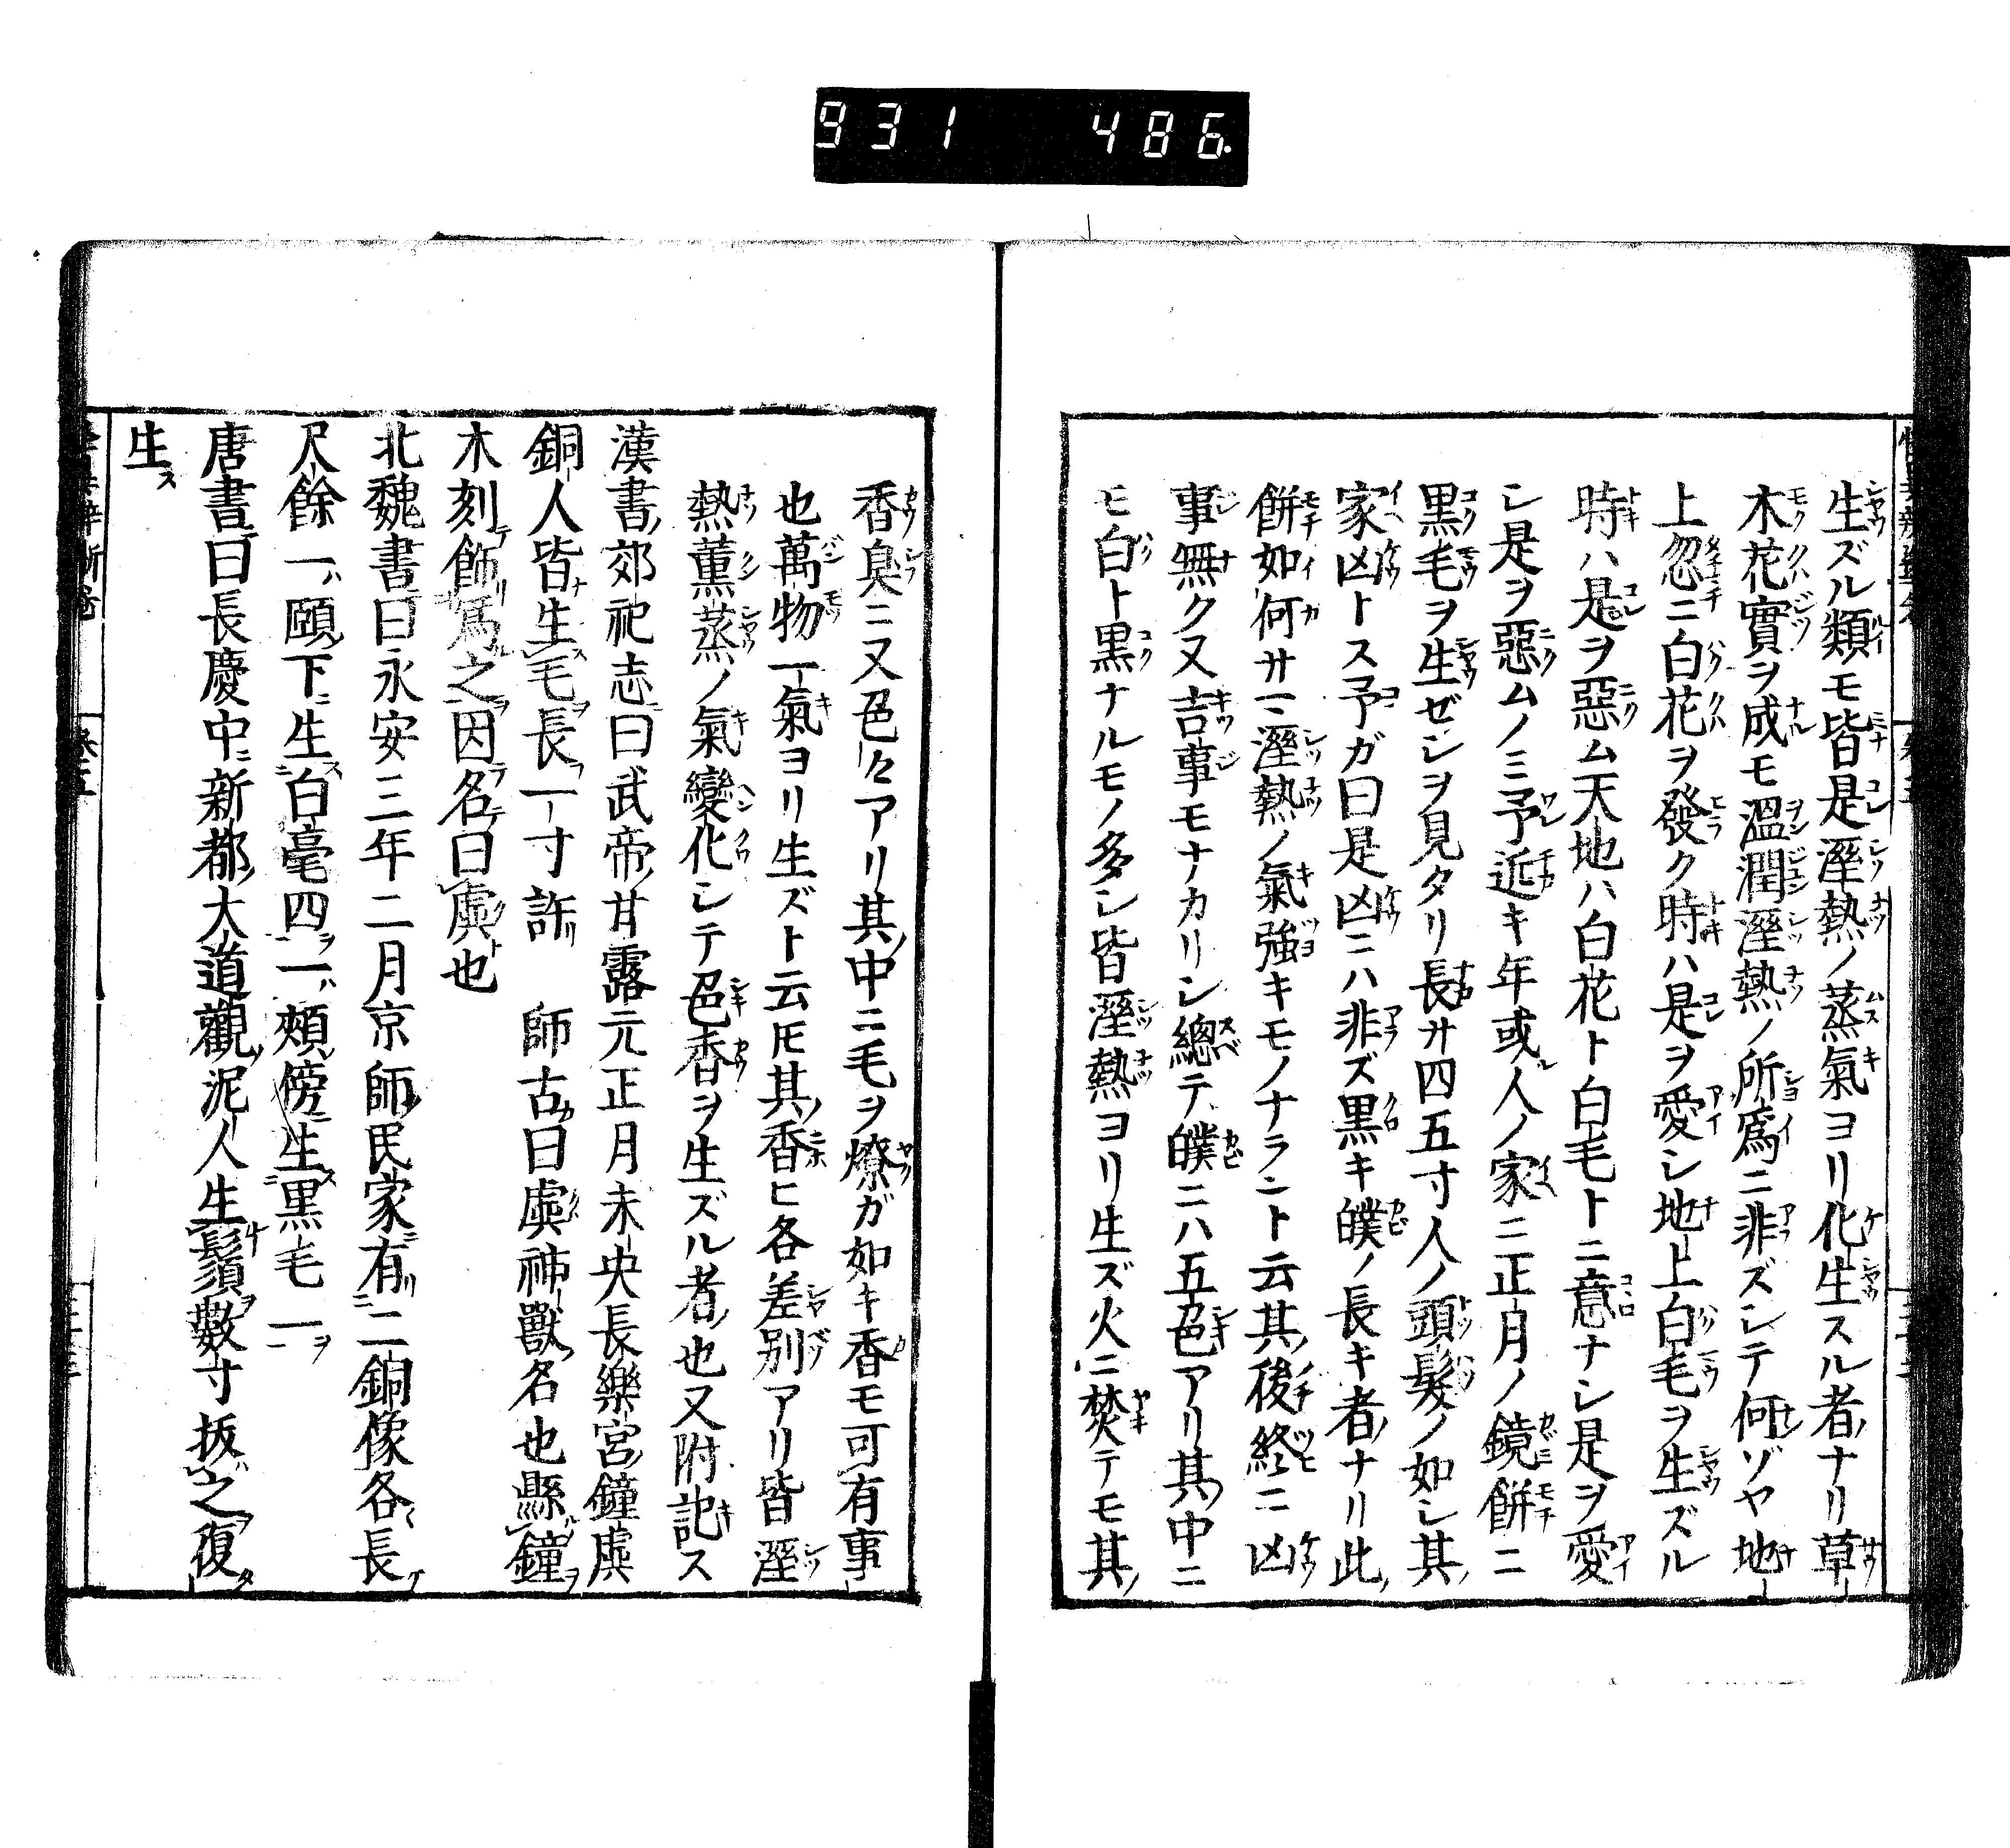 931 486
生ズル類モ皆是溼熱ノ蒸氣ヨリ化生スル者ナリ草
木花實ヲ成モ溫潤溼熱ノ所爲ニ非ズシテ何ゾヤ地
上忽ニ白花ヲ發ク時ハ是ヲ愛シ地上白毛ヲ生ズル
時ハ是ヲ惡ム天地ハ白花ト白毛トニ意ナシ是ヲ愛
シ是ヲ惡ムノミ予近キ年或人ノ家ニ正月ノ鏡餅ニ
黒毛ヲ生ゼシヲ見タリ長サ四五寸人ノ頭髮ノ如シ其
家凶トス予ガ曰是凶ニハ非ズ黒キ醭ノ長キ者ナリ此
餅如何サマ溼熱ノ氣強キモノナラント云其後終ニ凶
事無ク又吉事モナカリシ總テ醭ニハ五色アリ其中ニ
モ白ト黒ナルモノ多シ皆溼熱ヨリ生ズ火ニ焚テモ其
香臭ニ又色々アリ其中ニ毛ヲ燎ガ如キ香モ可有事
也萬物一氣ヨリ生ズト云𪜈其香ヒ各差別アリ皆溼
熱薫蒸ノ氣變化シテ色香ヲ生ズル者也又附記ス
漢書郊祀志曰武帝甘露元正月未央長樂宮鐘虡
銅人皆生毛長一寸許 師古曰虡神獸名也縣鐘
木刻飾爲之因名曰虡也
北魏書曰永安三年二月京師民家有二銅像各長
尺餘一頤下生白毫四一頰傍生黒毛一
唐書曰長慶中新都大道觀泥人生鬚數寸拔之復
生